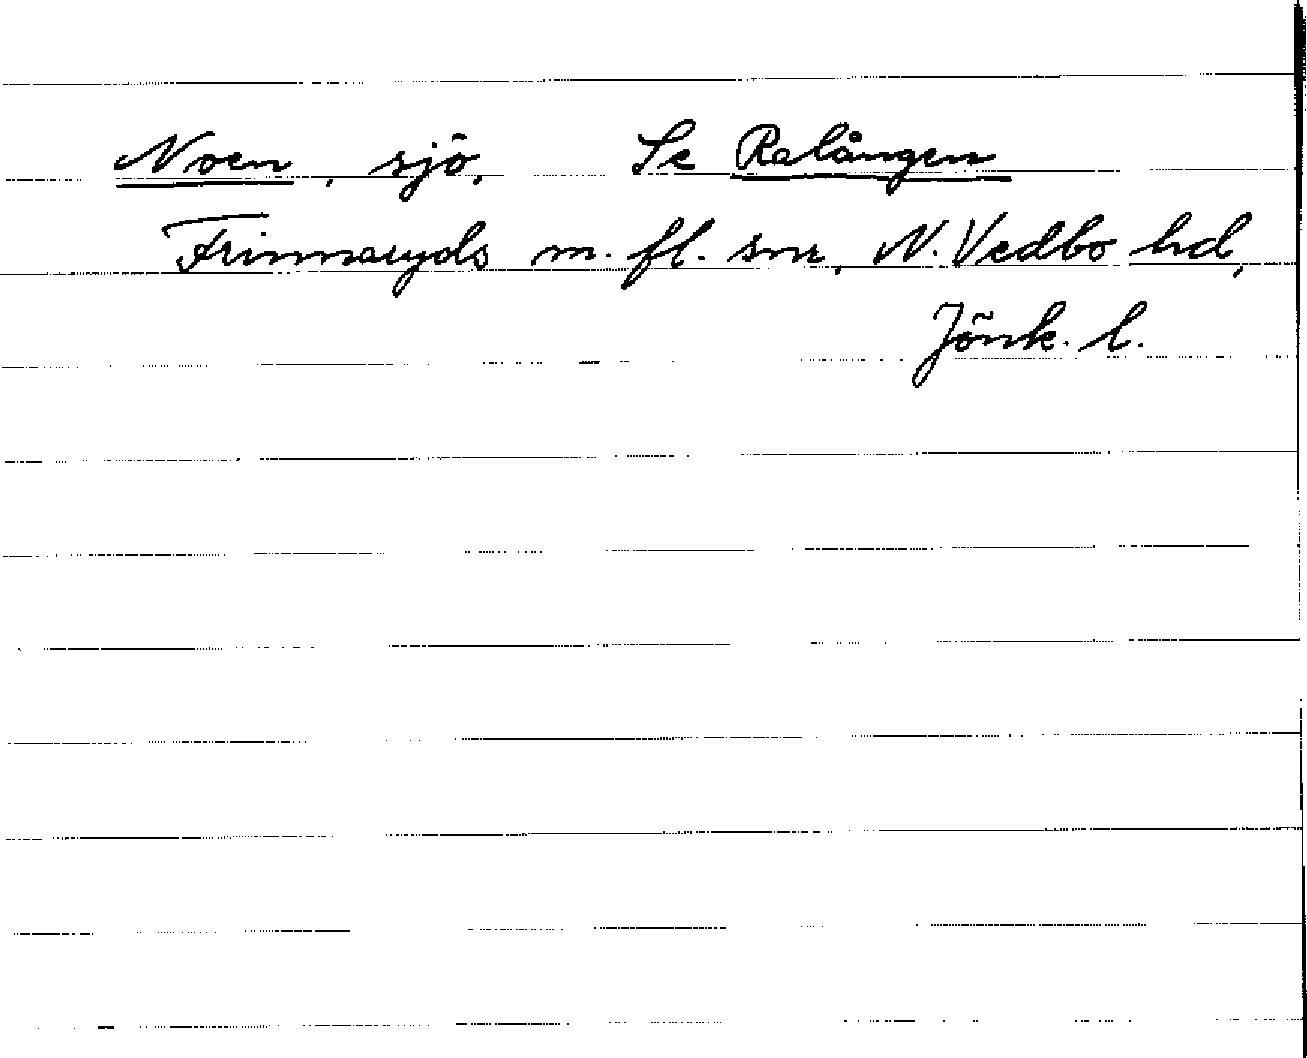 Noen, sjö. Se Ralången
Frinnaryds m. fl. snr, N. Vedbo hd,
Jönk. l.